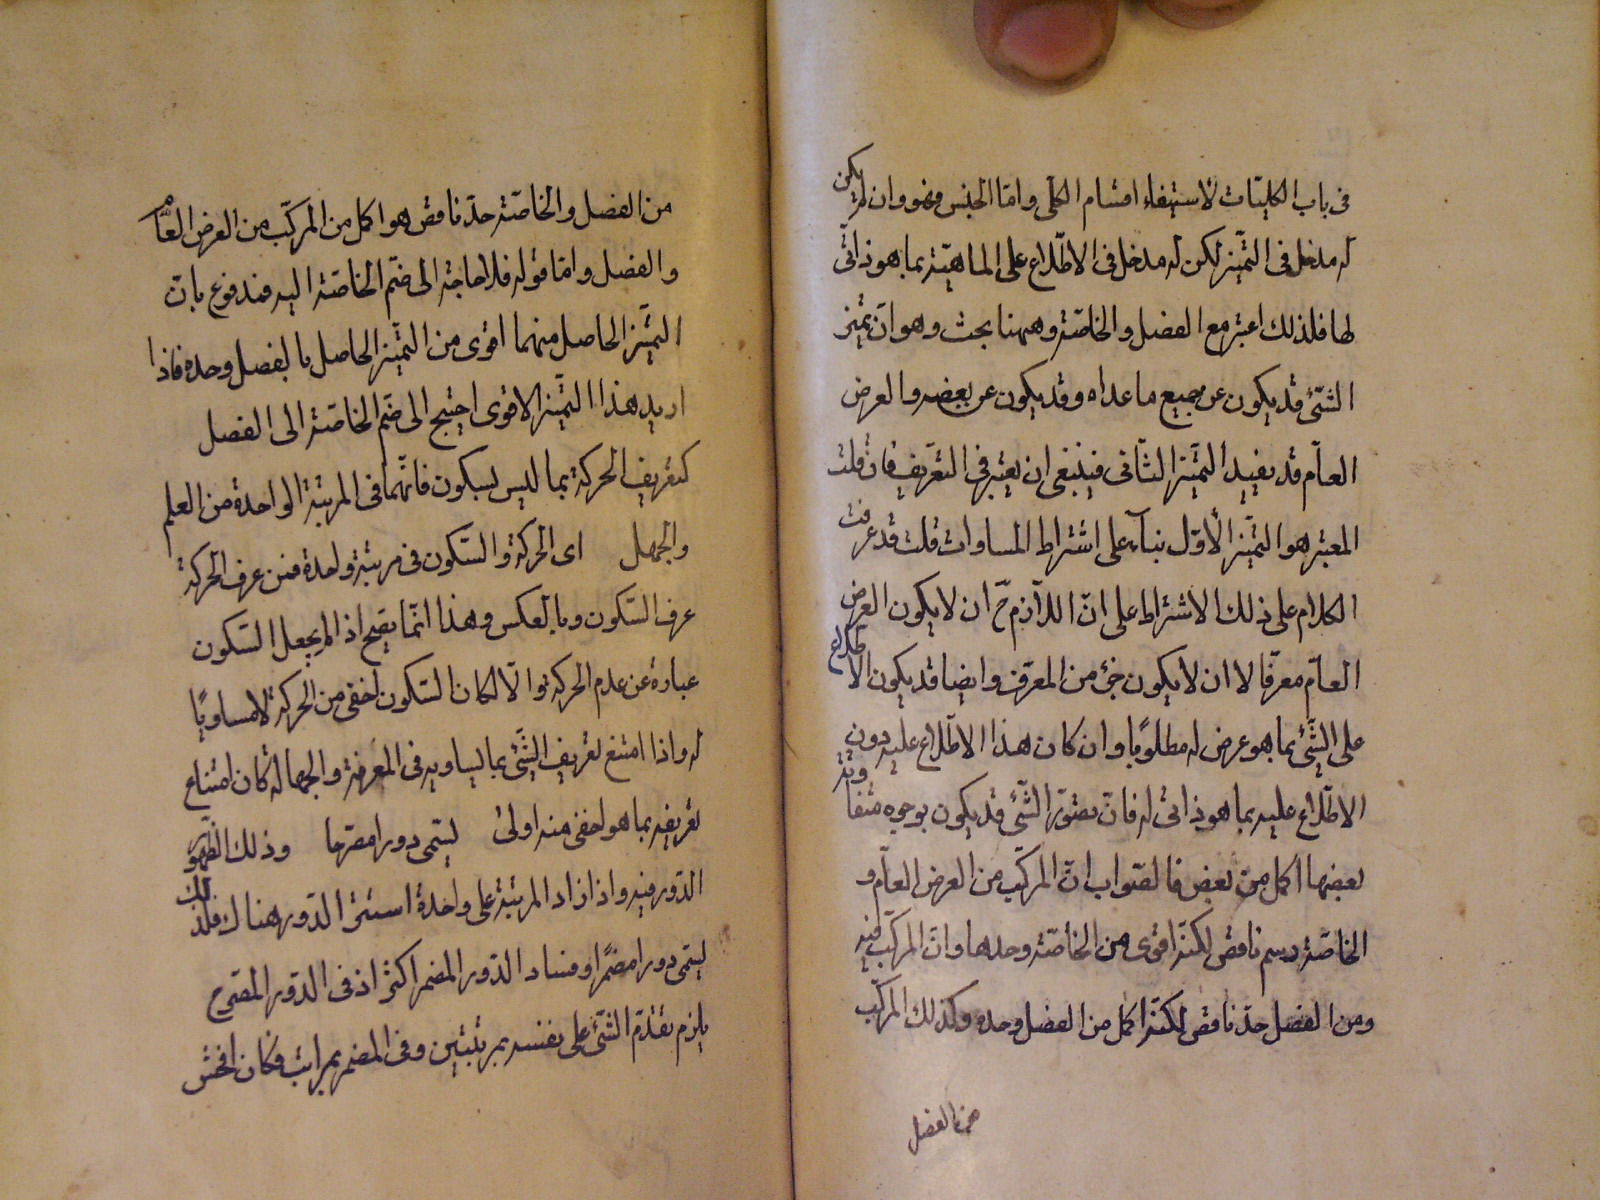 فى باب الكليّات لاستيفاء اقسام الكلّى وامّا الجنس فهو وان لم يكن
له مدخل فى التميّز لكن له مدخل فى الاطّلاع على الماهيّة بما هو ذاتىّ
لها فلذلك اعتبر مع الفصل والخاصّة وههنا بحث وهو انّ تميّز
الشّئ قد يكون عن جميع ما عداه وقد يكون عن بعضه والعرض
العامّ قد يفيد التميّز الثّانى فينبغى ان يعتبر فى التعريف فان قلت
المعتبر هو التميّز الأوّل بناء على اشتراط المساوات قلت قد عرفت
الكلام على ذلك الاشتراط على انّ اللازم ح ان لا يكون العرض
العامّ معرّفا لا ان لا يكون جزء من المعرّف وايضا قد يكون الاطلاع
على الشّئ بما هو عرض له مطلوبًا وان كان هذا الاطّلاع عليه دون
الاطّلاع عليه بما هو ذاتى له فانّ تصوّر الشّئ قد يكون بوجوه متفاوتة
بعضها اكمل من بعض فالصّواب انّ المركّب من العرض العامّ و
الخاصّة رسم ناقص لكنّه اقوى من الخاصّة وحدها وانّ المركّب منه
ومن الفصل حدّ ناقص لكنّه اكمل من الفصل وحده وكذلك المركّب
من الفصل
من الفصل والخاصّة حدّ ناقص هو اكمل من المركّب من العرض العامّ
والفصل وامّا قوله فلا حاجة الى ضمّ الخاصّة اليه فمدفوع بانّ
التميّز الحاصل منهما اقوى من التميّز الحاصل بالفصل وحده فاذا
اريد هذا التميّز الاقوى احتيج الى ضمّ الخاصّة الى الفصل
كتعريف الحركة بما ليس بسكون فانّهما فى المرتبة الواحدة من العلم
والجهل اى الحركة والسّكون فى مرتبة واحدة فمن عرف الحركة
عرف السّكون وبالعكس وهذا انّما يصحّ اذا لم يجعل السّكون
عبارة عن عدم الحركة والّا لكان السّكون اخفى من الحركة لا مساويًا
له واذا امتنع تعريف الشّئ بما يساويه فى المعرفة والجهالة كان امتناع
تعريفه بما هو اخفى منه اولىٰ يسمّى دورا مصرّحا وذلك لظهور
الدّور فيه واذا زاد المرتبة على واحدة استتر الدّور هناك فلذلك
يسمّى دورا مضمرًا وفساد الدّور المضمر اكثر اذ فى الدّور المصرّح
يلزم تقدّم الشّئ على نفسه بمرتبتين وفى المضمر بمراتب فكان افحش